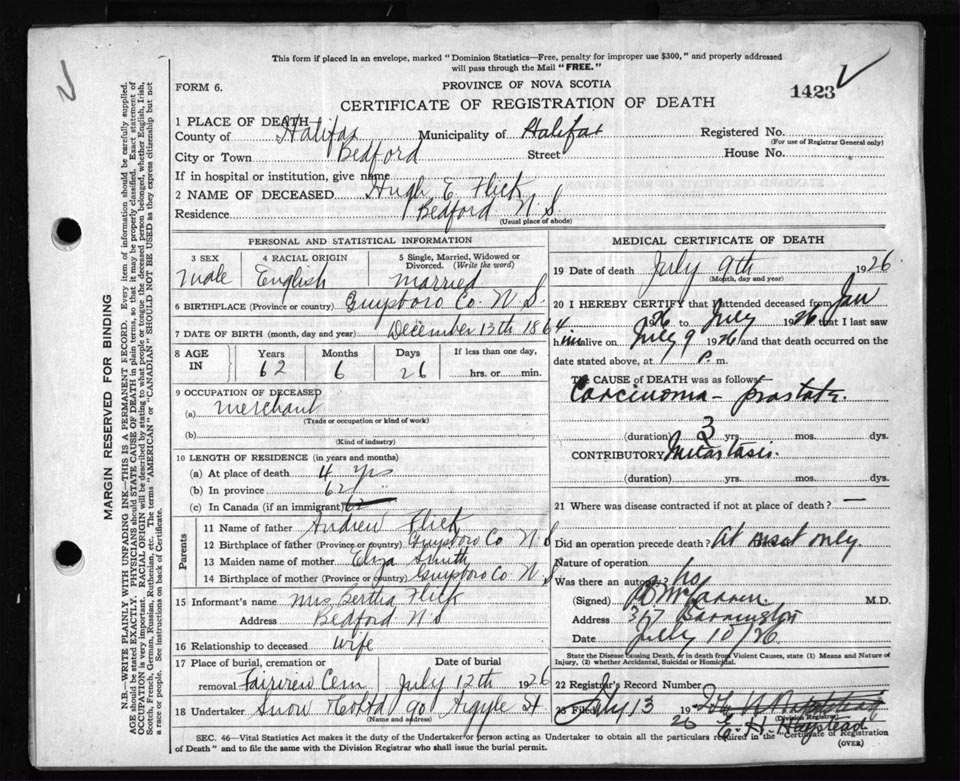 This form if placed in an envelope, marked "Dominion Statistics—Free, penalty for improper use $300," and properly addressed
will pass through the Mail "FREE."
FORM 6.
PROVINCE OF NOVA SCOTIA
1423
CERTIFICATE OF REGISTRATION OF DEATH
1 PLACE OF DEATH
County of Halifax Municipality of Halifax Registered No.
(For use of Registrar General only)
City or Town Bedford Street House No.
If in hospital or institution, give name
2 NAME OF DECEASED Hugh E Flick
Residence Bedford N.S.
(Usual place of abode)
PERSONAL AND STATISTICAL INFORMATION
3 SEX 4 RACIAL ORIGIN 5 Single, Married, Widowed or
Divorced. (Write the word)
Male English Married
6 BIRTHPLACE (Province or country) Guysboro Co. N.S.
7 DATE OF BIRTH (month, day and year) December 13th 1864
8 AGE IN Years Months Days If less than one day,
62 6 26 hrs. or min.
9 OCCUPATION OF DECEASED
(a) Merchant
(Trade or occupation or kind of work)
(b)
(Kind of industry)
10 LENGTH OF RESIDENCE (in years and months)
(a) At place of death 4 yrs
(b) In province 62
(c) In Canada (if an immigrant) 62
Parents
11 Name of father Andrew Flick
12 Birthplace of father (Province or country) Guysboro Co N.S
13 Maiden name of mother Eliza Smith
14 Birthplace of mother (Province or country) Guysboro Co N.S
15 Informant's name Mrs Bertha Flick
Address Bedford N S
16 Relationship to deceased wife
17 Place of burial, cremation or Date of burial
removal Fairview Cem July 12th 1926
18 Undertaker Snow & Co Ltd 90 Argyle St
(Name and address)
MEDICAL CERTIFICATE OF DEATH
19 Date of death July 9th 1926
(Month, day and year)
20 I HEREBY CERTIFY that I attended deceased from Jan
1926 to July 1926 that I last saw
him alive on July 9 1926 and that death occurred on the
date stated above, at P. m.
The CAUSE of DEATH was as follows
Carcinoma - prostate.
(duration) 3 yrs. mos. dys.
CONTRIBUTORY Metastasis.
(duration) yrs. mos. dys.
21 Where was disease contracted if not at place of death? —
Did an operation precede death? At onset only
Nature of operation
Was there an autopsy? no
(Signed) M.D.
Address 367 Barrington
Date July 10/26
State the Disease causing Death, or in death from Violent Causes, state (1) Means and Nature of
Injury, (2) whether Accidental, Suicidal or Homicidal.
22 Registrar's Record Number
23 Filed July 13 1926
(Division Registrar)
SEC. 46—Vital Statistics Act makes it the duty of the Undertaker or person acting as Undertaker to obtain all the particulars required in the Certificate of Registration
of Death" and to file the same with the Division Registrar who shall issue the burial permit.
(OVER)
MARGIN RESERVED FOR BINDING
N.B.—WRITE PLAINLY WITH UNFADING INK—THIS IS A PERMANENT RECORD. Every item of information should be carefully supplied.
AGE should be stated EXACTLY. PHYSICIANS should STATE CAUSE OF DEATH in plain terms, so that it may be properly classified. Exact statement of
OCCUPATION is very important. RACIAL ORIGIN will be described by stating to what people or tongue the deceased person belonged, whether English, Irish,
Scotch, French, German, Russian, Ruthenian, etc. The terms "AMERICAN" or "CANADIAN" SHOULD NOT BE USED as they express citizenship but not
a race or people. See instructions on back of Certificate.